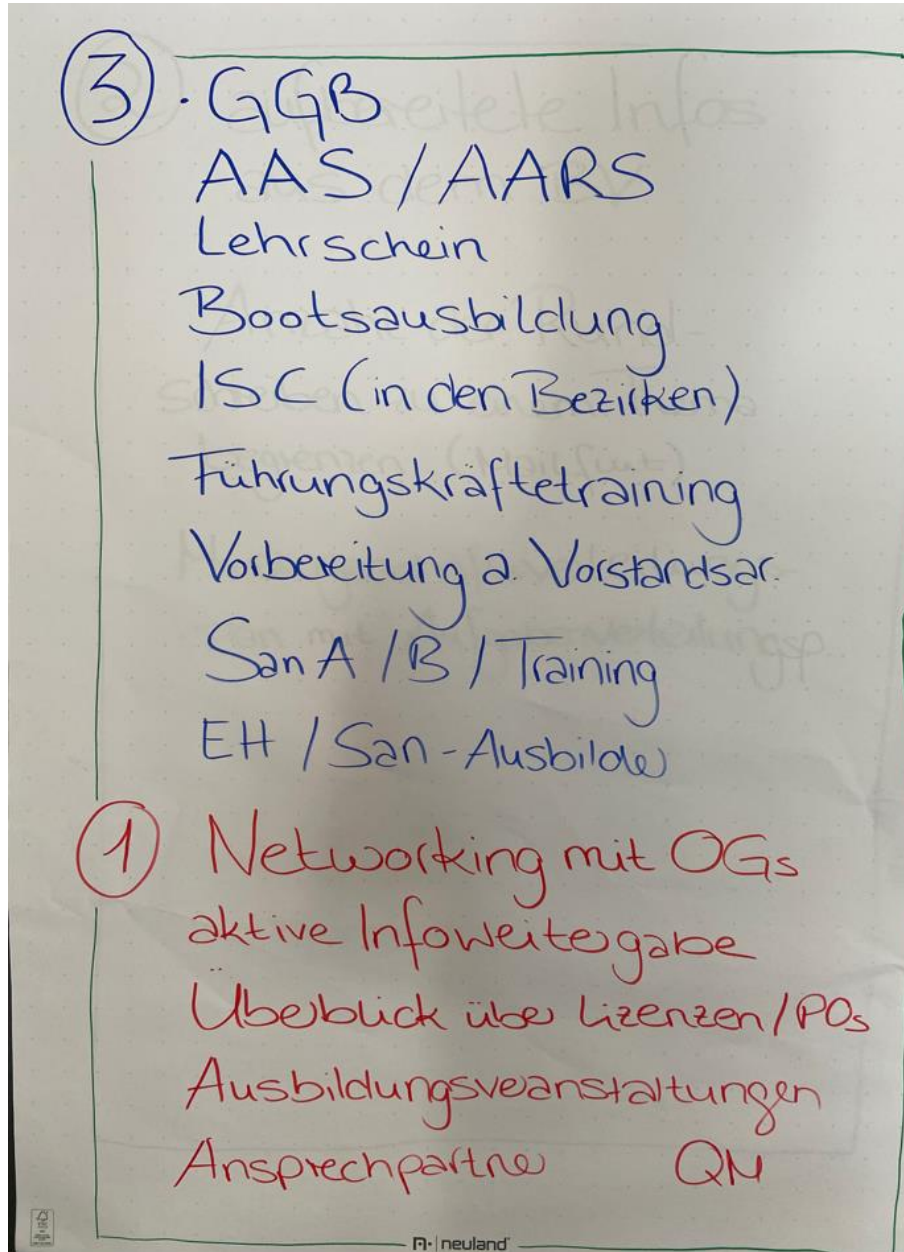 3 · GGB
AAS / AARS
Lehrschein
Bootsausbildung
ISC (in den Bezirken)
Führungskräftetraining
Vorbereitung a. Vorstandsar.
San A / B / Training
EH / San-Ausbilder
1 Networking mit OGs
aktive Infoweitergabe
Überblick über Lizenzen/POs
Ausbildungsveranstaltungen
Ansprechpartner QM
neuland